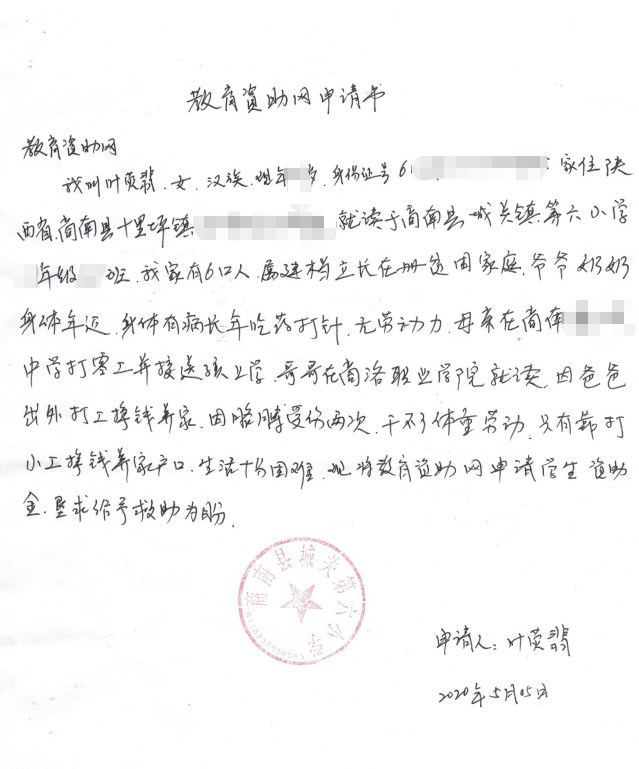 教育资助网申请书
教育资助网
我叫叶荧翡.女.汉族.现年 岁.身份证号6 家住陕
西省.商南县十里坪镇 就读于商南县城关镇第六小学
年级 班.我家有6口人属建档立长在册贫困家庭.爷爷奶奶
身体年迈.身体有病长年吃药打针.无劳动力.母亲在商南
中学打零工并接送孩上学.哥哥在商洛职业学院就读.因爸爸
出外打工挣钱养家.因胳膊受伤两次.干不了体重劳动.只有靠打
小工挣钱养家户口.生活十份困难.现将教育资助网申请学生资助
金.垦求给予救助为盼.
商南县城关第六小学
申请人:叶荧翡
2020年5月05日